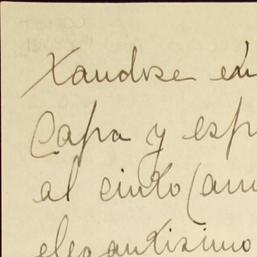 Xandose en
Capa y esp
al cinto (am
elegantisimo